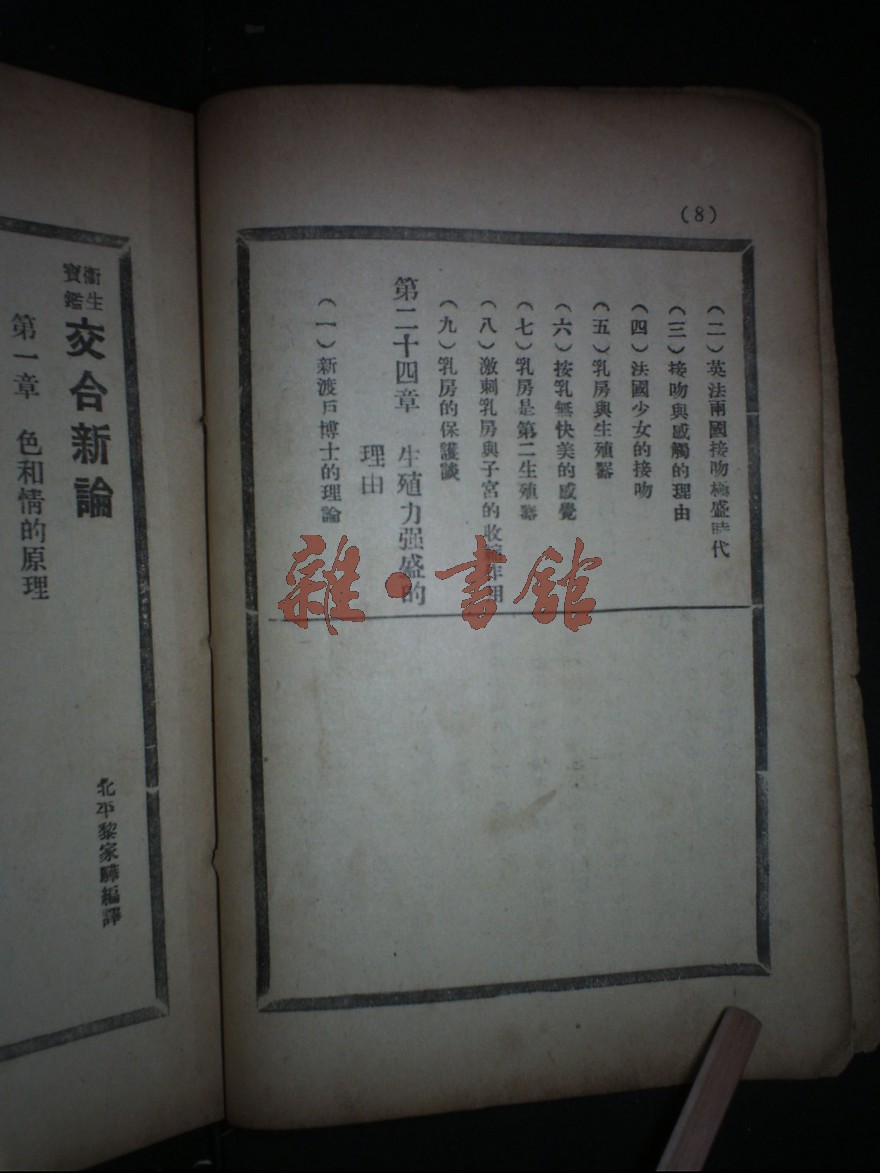 (8)
（二）英法兩國接吻極盛時代
（三）接吻與感觸的理由
（四）法國少女的接吻
（五）乳房與生殖器
（六）按乳無快美的感覺
（七）乳房是第二生殖器
（八）激刺乳房與子宮的收縮作用
（九）乳房的保護談
第二十四章 生殖力强盛的
理由
（一）新渡戶博士的理論
衛生
寶鑑
交合新論
北平黎家驊編譯
第一章 色和情的原理
雜·書館